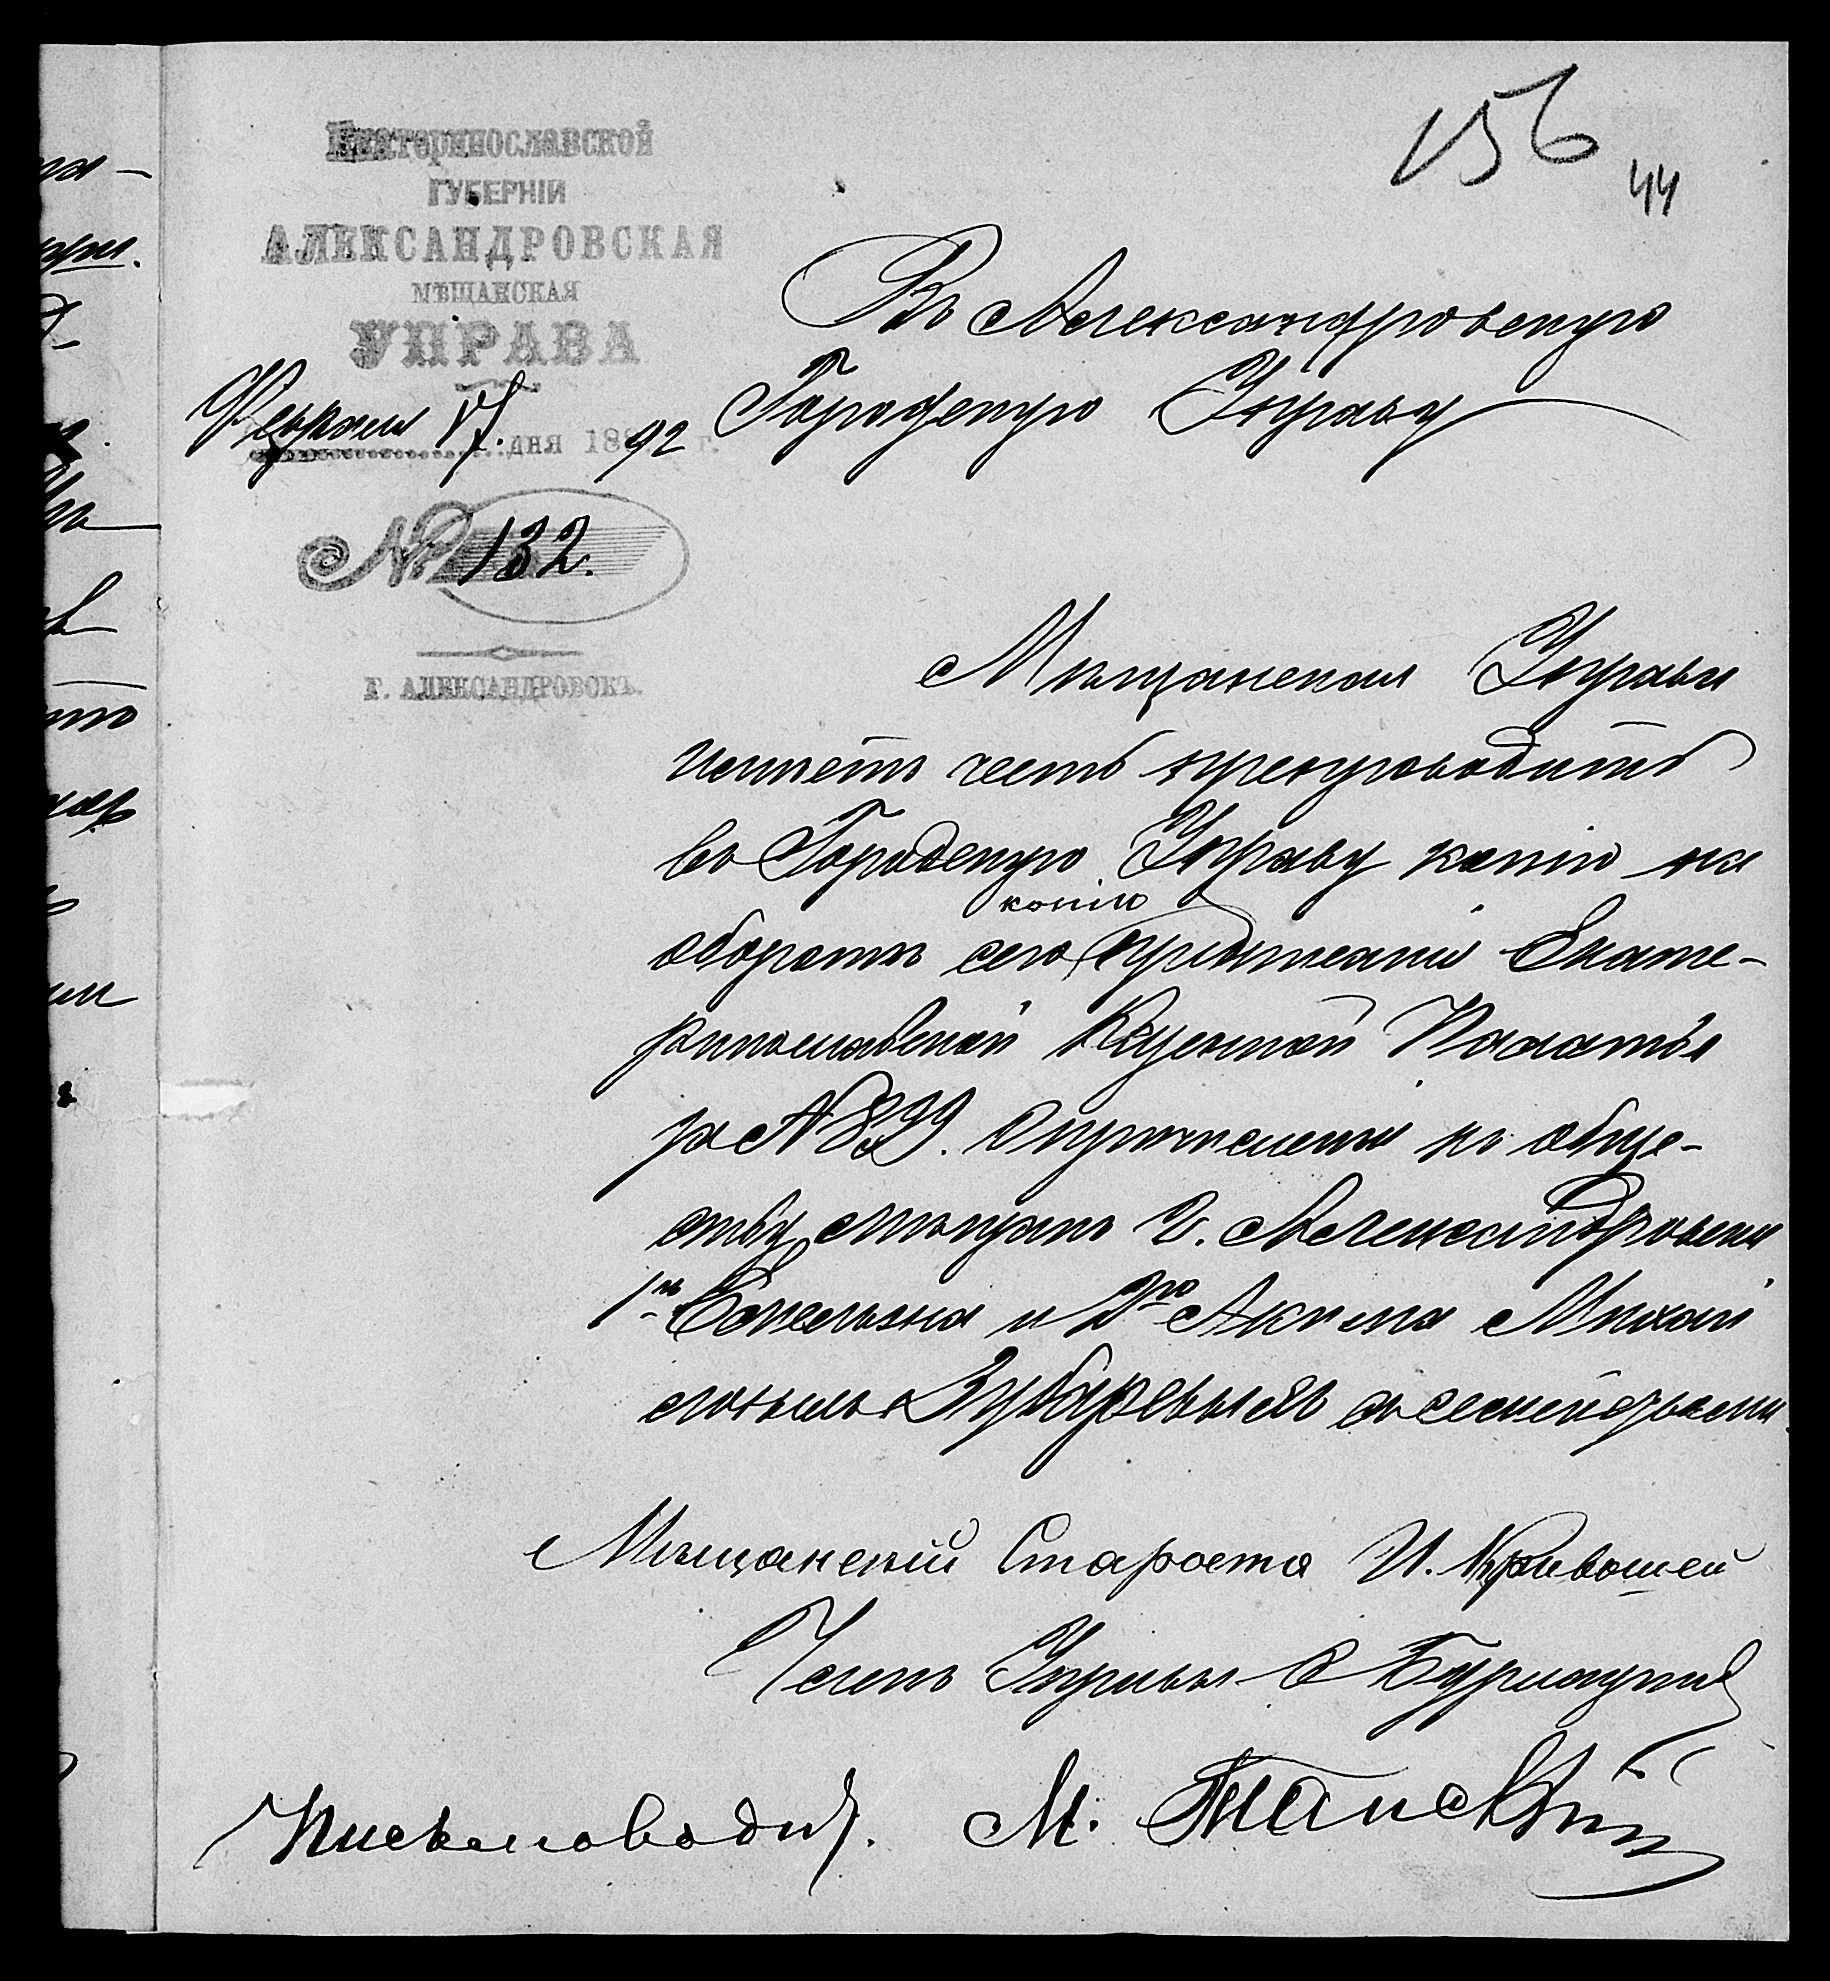 156
44
Екатеринославской
ГУБЕРНІИ
АЛЕКСАНДРОВСКАЯ
МѢЩАНСКАЯ
УПРАВА
Февраля 17. дня 1892 г.
№ 132.
Г. АЛЕКСАНДРОВСКЪ.
Въ Александровскую
Городскую Управу
Мѣщанская Управа
имѣетъ честь препроводить
въ Городскую Управу копію на
оборотѣ сего копію предписанія Екате-
ринославской Казенной Палаты
за № 899. О причисленіи къ обще-
ству мѣщанъ г. Александровска
1го Емельяна и 2го Акима Михай
ловыхъ Зубаревыхъ съ семействами
Мѣщанскій Староста И. Кривошей
Членъ Управы
Письмоводит. М.